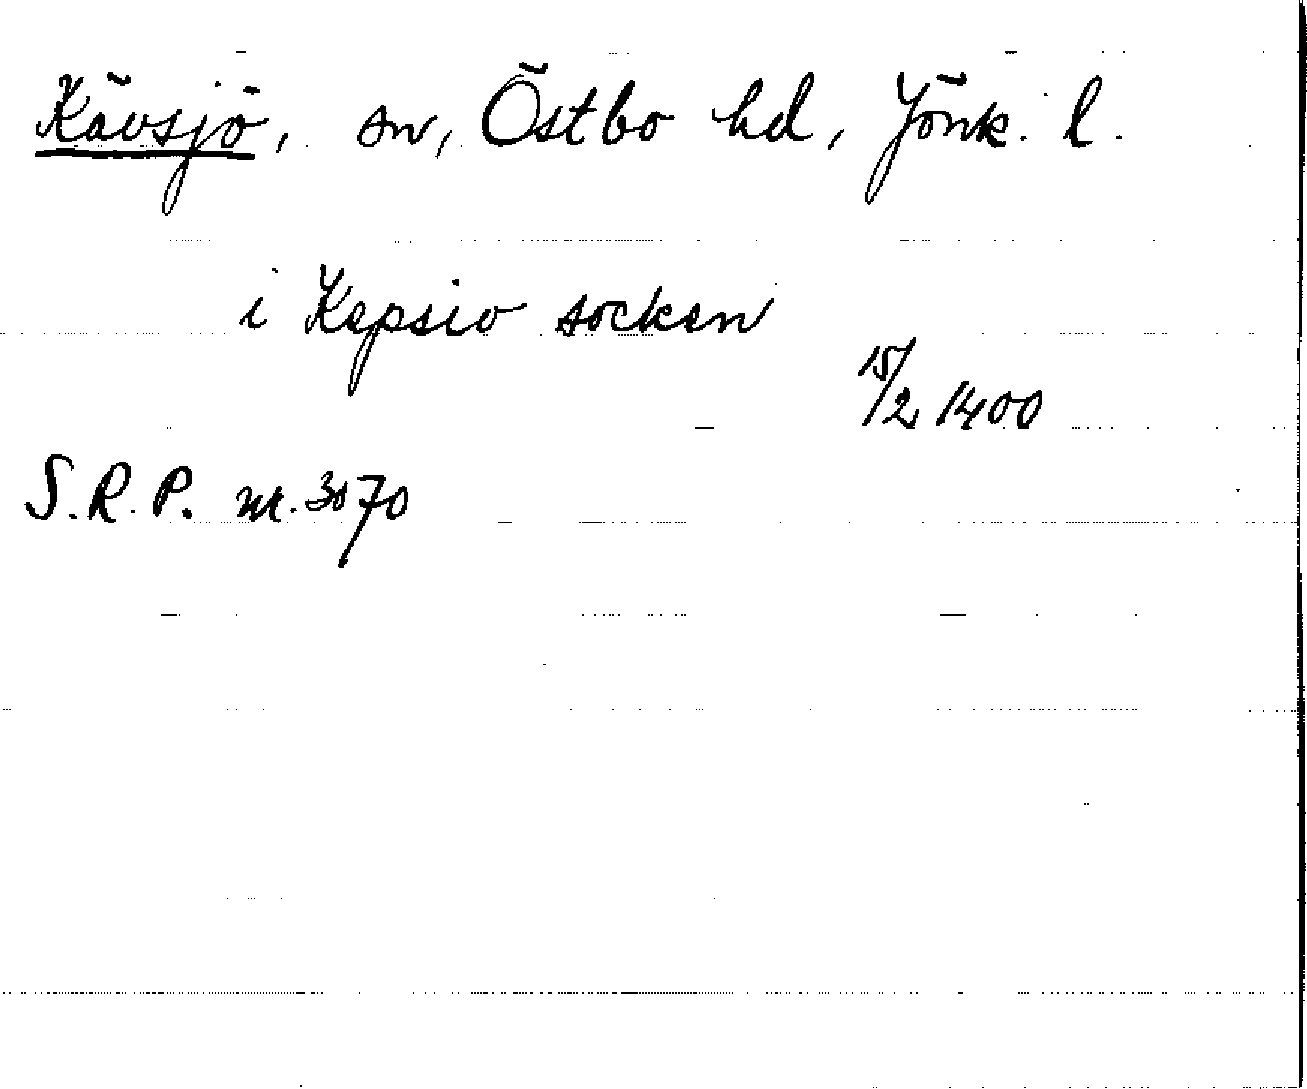 Kävsjö, sn, Östbo hd, Jönk. l.
i Kepsio socken
15/2 1400
S.R.P. nr. 3070